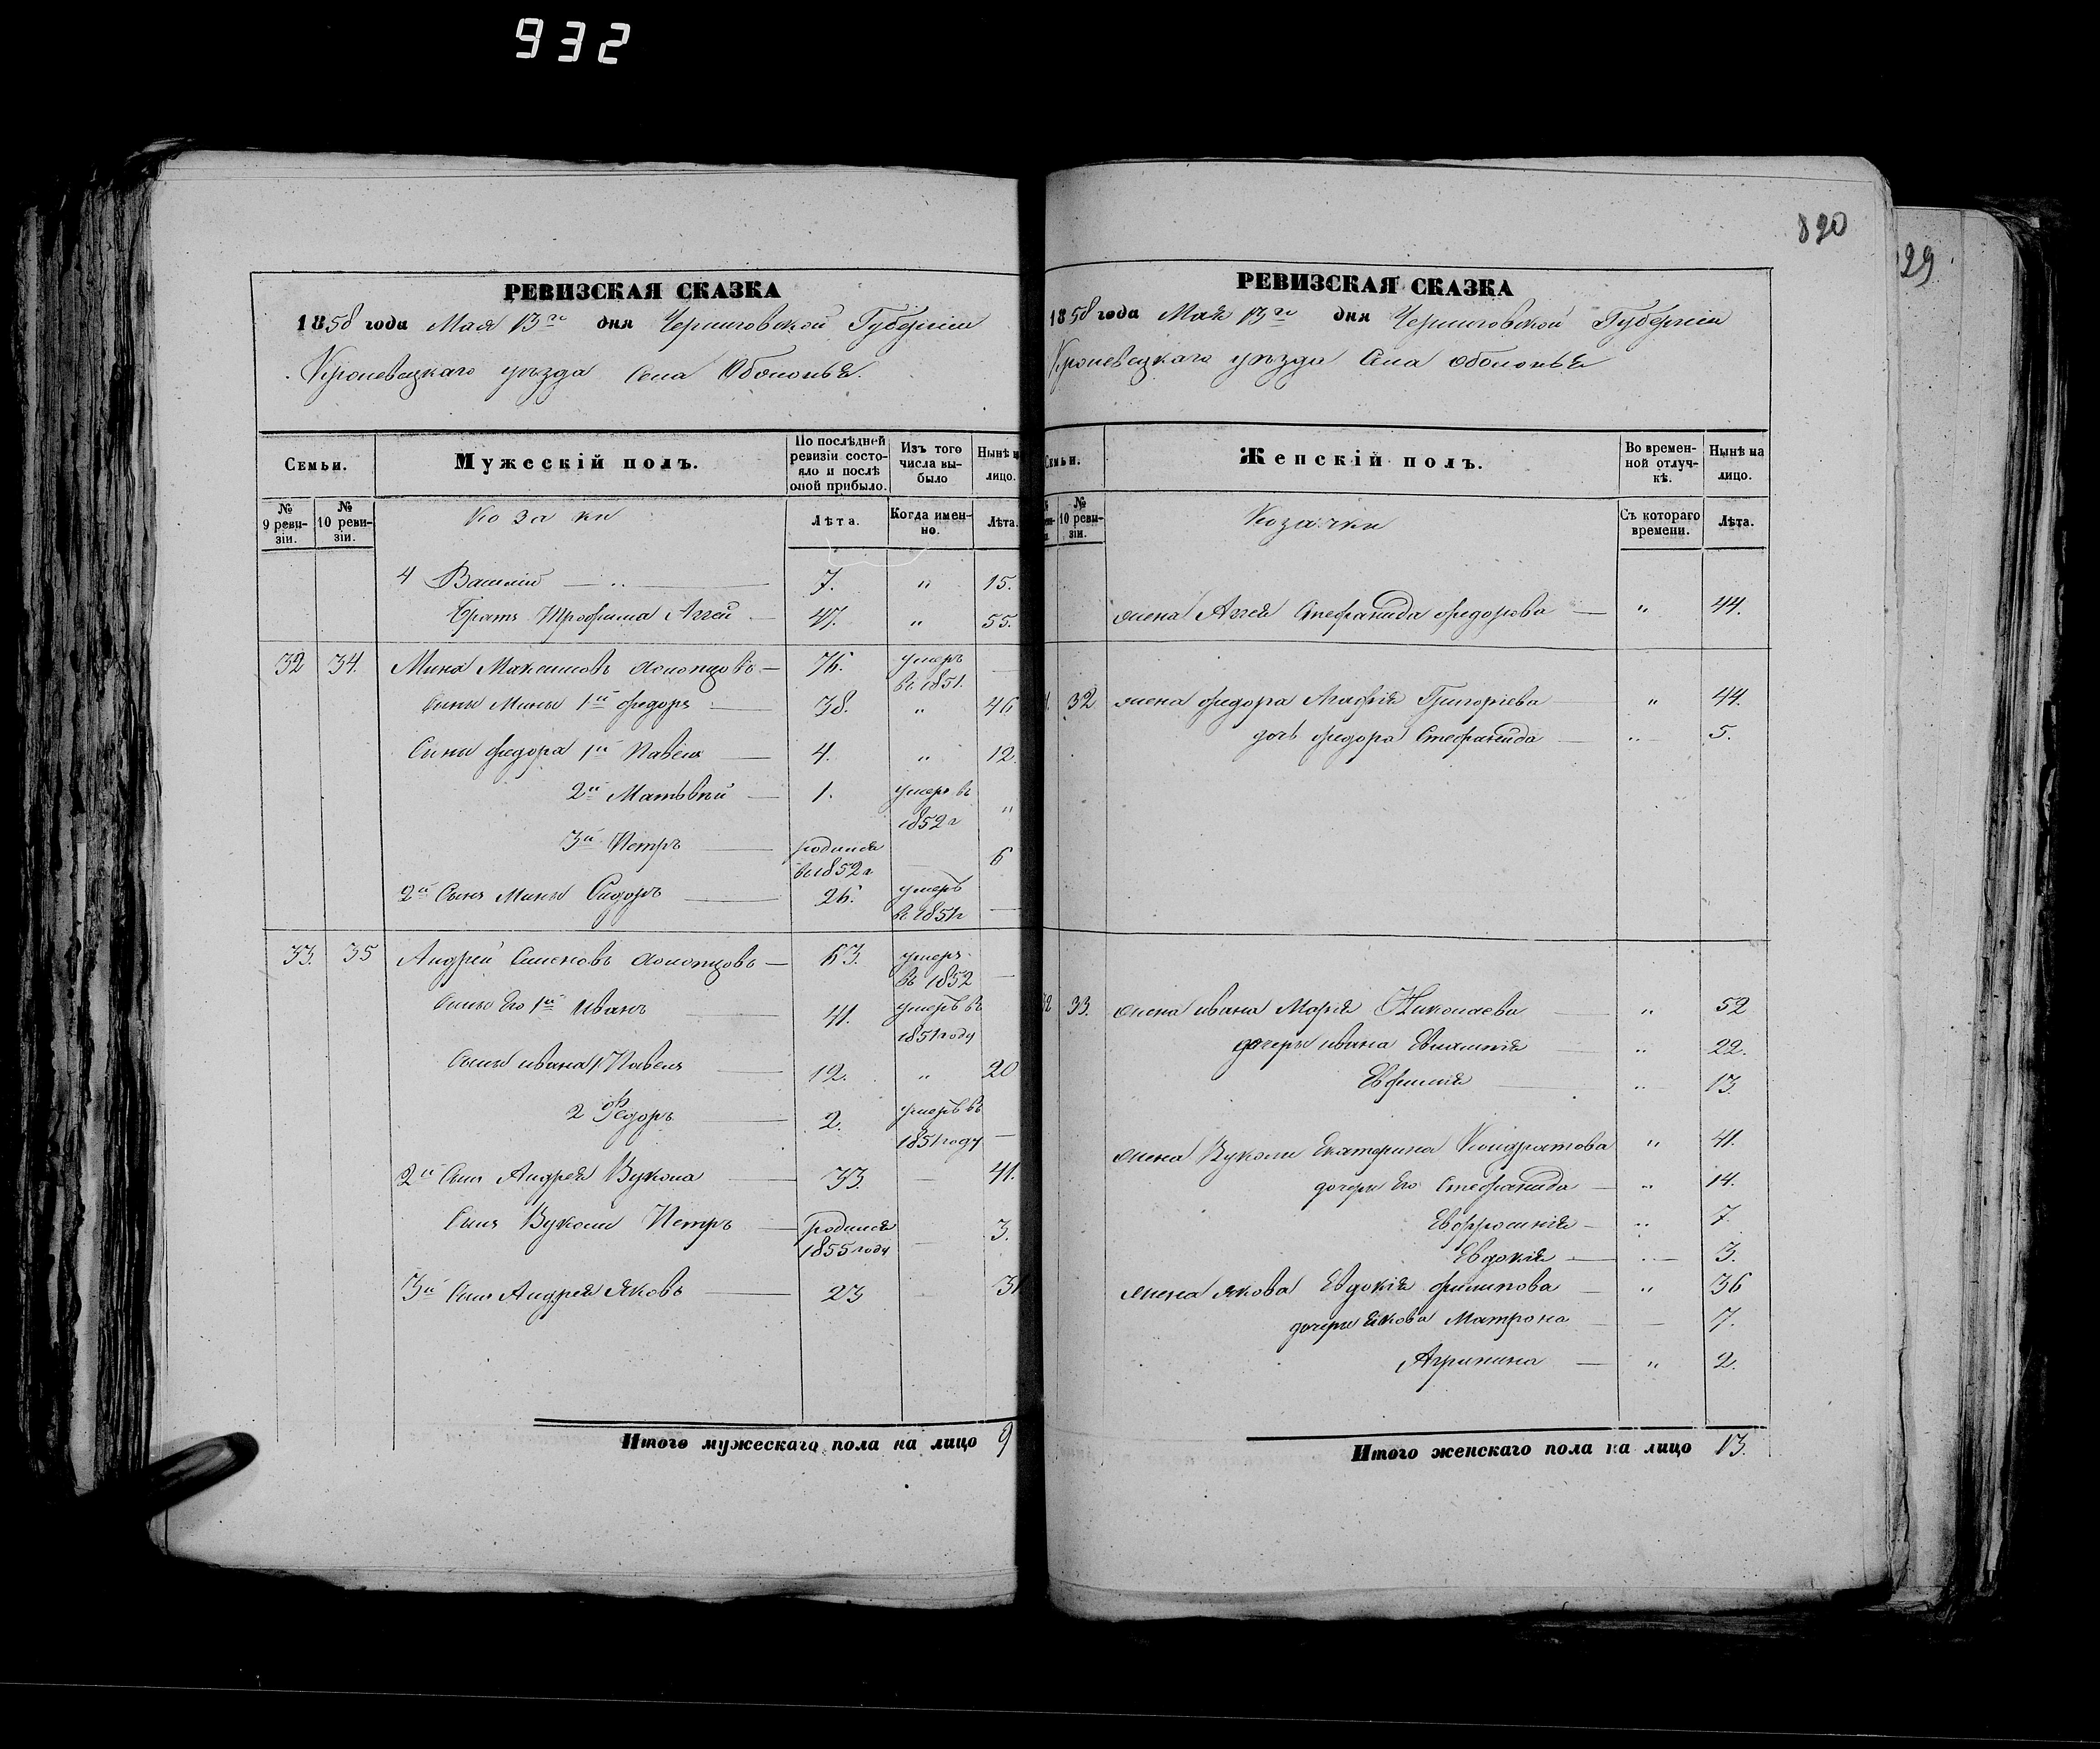 932
РЕВИЗСКАЯ СКАЗКА
1858 года Мая 13го дня Черниговской Губерніи
Кролевецкаго уѣзда Села Оболонья.
Семьи.
Мужескій полъ.
По послѣдней ревизіи состояло и послѣ оной прибыло.
Изъ того числа выбыло
Нынѣ на лицо.
№ 9 ревизіи.
№ 10 ревизіи.
Козаки
Лѣта.
Когда именно.
Лѣта.
4 Василій 7. " 15.
Братъ Трофима Аггей 47. " 55.
32 34. Мина Максимовъ Холопцовъ 76. умеръ въ 1851.
Сыны Мины 1й Федоръ 38. " 46
Сыны Федора 1й Павелъ 4. " 12.
2й Матвѣй 1. умеръ въ 1852г "
3й Петръ родился въ 1852г 6
2й Сынъ Мины Сидоръ 26. умеръ въ 1851г
33. 35 Андрей Симоновъ Холопцовъ 63. умеръ въ 1852
Сыны Его 1й Иванъ 41. умеръ въ 1851 году
Сыны Ивана 1 Павелъ 12. " 20
2 Федоръ 2. умеръ въ 1851 году
2й Сынъ Андрея Вукола 33 41.
Сынъ Вуколы Петръ родился 1855 году 3.
3й Сынъ Андрея Яковъ 23 31
Итого мужескаго пола на лицо 9
820
РЕВИЗСКАЯ СКАЗКА
1858 года Мая 13го дня Черниговской Губерніи
Кролевецкаго уѣзда Села Оболонья
Семьи.
Женскій полъ.
Во временной отлучкѣ.
Нынѣ на лицо.
№ 10 ревизіи.
Козачки
Съ котораго времени.
Лѣта.
жена Аггея Стефанида Федорова " 44.
32 жена Федора Агафія Григоріева " 44.
дочь Федора Стефанида " 5.
33. жена Ивана Марія Николаева " 52
дочери Ивана Евлампія " 22.
Евфимія " 13.
жена Вуколы Екатерина Кондратова " 41.
дочери Его Стефанида " 14.
Евфросинія " 7.
Евдокія 3.
жена Якова Евдокія Филипова " 36
дочери Якова Матрона 7.
Агрипина " 2.
Итого женскаго пола на лицо 13.
29